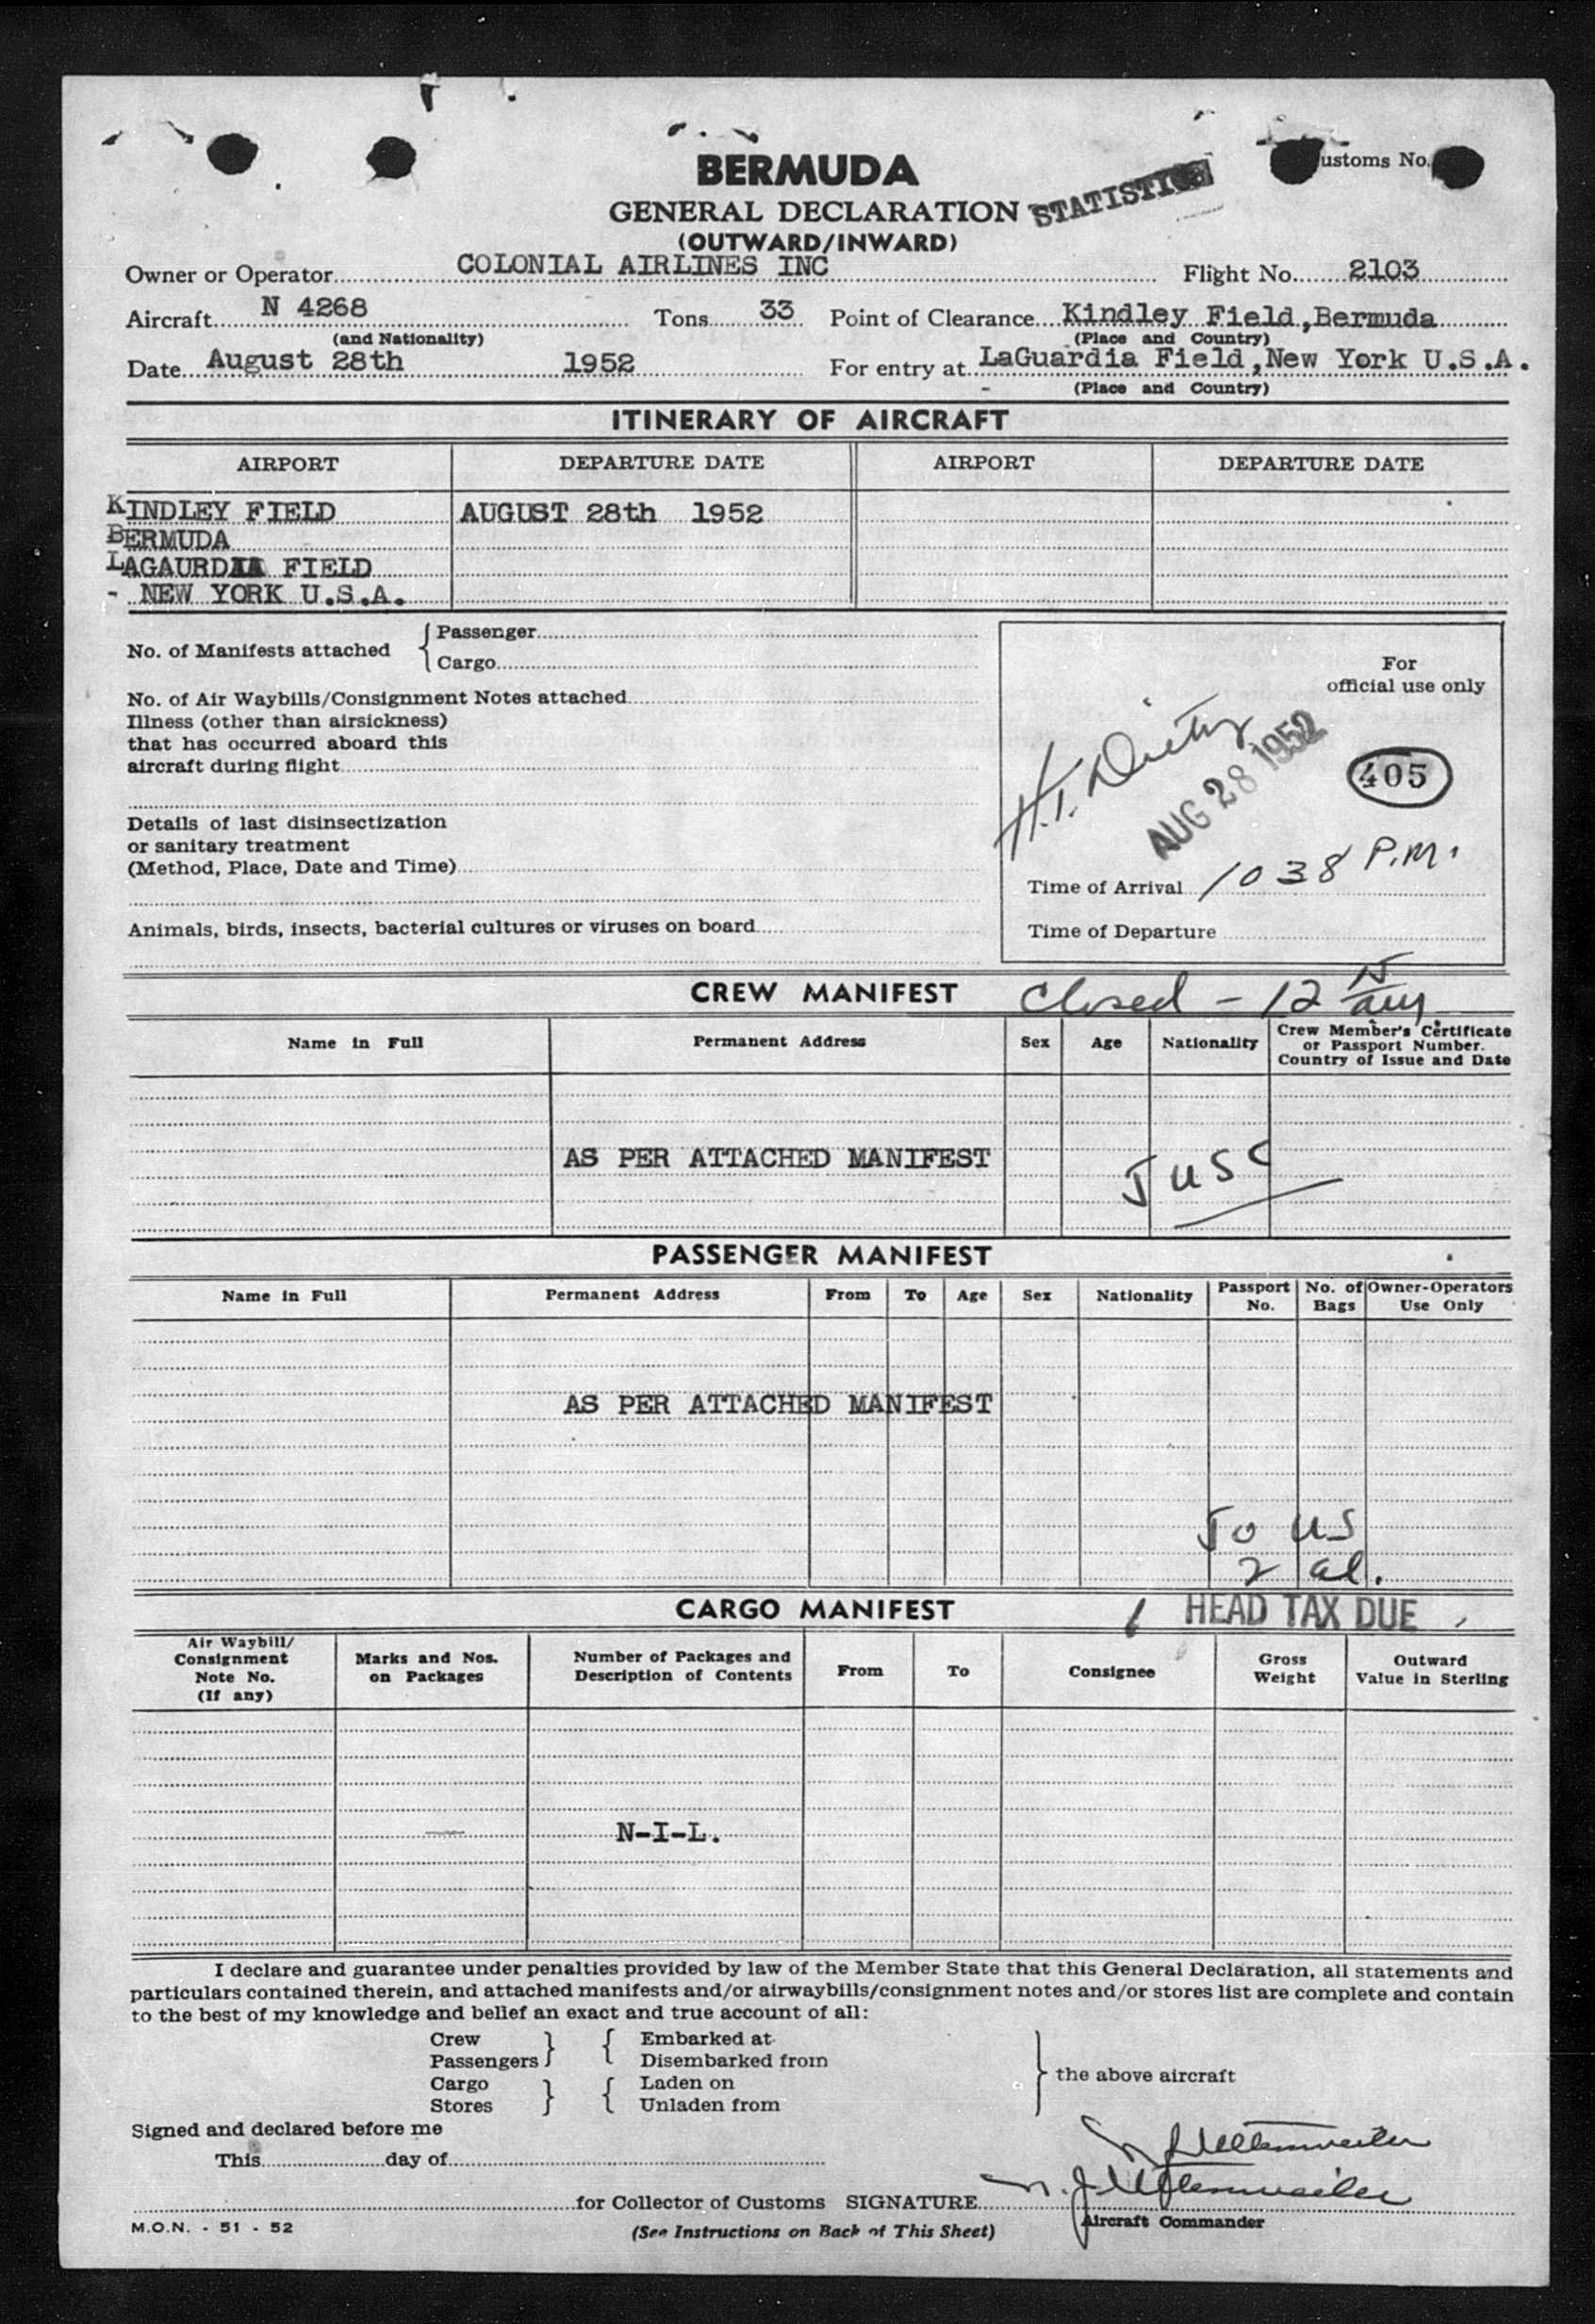 BERMUDA
ustoms No.
GENERAL DECLARATION STATISTICS
(OUTWARD/INWARD)
Owner or Operator COLONIAL AIRLINES INC Flight No. 2103
Aircraft N 4268 Tons 33 Point of Clearance Kindley Field,Bermuda
(and Nationality) (Place and Country)
Date August 28th 1952 For entry at LaGuardia Field,New York U.S.A.
(Place and Country)
ITINERARY OF AIRCRAFT
AIRPORT DEPARTURE DATE AIRPORT DEPARTURE DATE
KINDLEY FIELD AUGUST 28th 1952
BERMUDA
LAGAURDIA FIELD
- NEW YORK U.S.A.
No. of Manifests attached { Passenger
Cargo
For
official use only
No. of Air Waybills/Consignment Notes attached
Illness (other than airsickness)
that has occurred aboard this
aircraft during flight
H.T.
AUG 28 1952
405
Details of last disinsectization
or sanitary treatment
(Method, Place, Date and Time)
Time of Arrival 1038 P.M.
Animals, birds, insects, bacterial cultures or viruses on board
Time of Departure
CREW MANIFEST Closed - 12
Name in Full Permanent Address Sex Age Nationality Crew Member's Certificate
or Passport Number.
Country of Issue and Date
AS PER ATTACHED MANIFEST
PASSENGER MANIFEST
Name in Full Permanent Address From To Age Sex Nationality Passport No. No. of Bags Owner-Operators Use Only
AS PER ATTACHED MANIFEST
US
2 al.
CARGO MANIFEST HEAD TAX DUE
Air Waybill/ Consignment Note No. (If any) Marks and Nos. on Packages Number of Packages and Description of Contents From To Consignee Gross Weight Outward Value in Sterling
N-I-L.
I declare and guarantee under penalties provided by law of the Member State that this General Declaration, all statements and
particulars contained therein, and attached manifests and/or airwaybills/consignment notes and/or stores list are complete and contain
to the best of my knowledge and belief an exact and true account of all:
Crew } { Embarked at
Passengers Disembarked from
} the above aircraft
Cargo } { Laden on
Stores Unladen from
Signed and declared before me
This day of
for Collector of Customs SIGNATURE
Aircraft Commander
M.O.N. - 51 - 52 (See Instructions on Back of This Sheet)